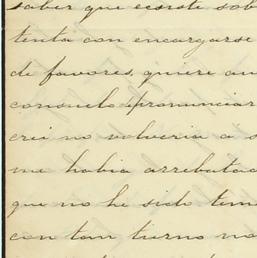 saber que existe sob
tenta con encargarse
de favores, quiere au
consuelo pronunciar
crei no volveria a s
me habia arrebatad
que no he sido tem
con tan tierno no